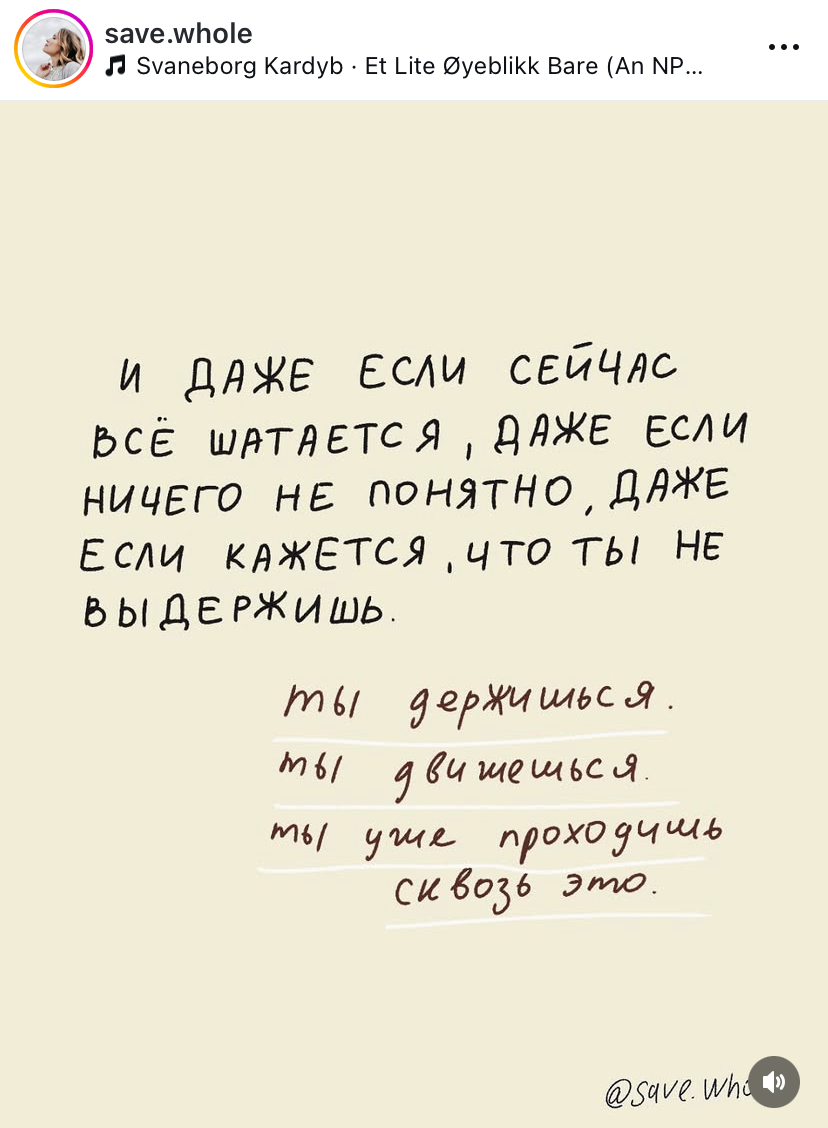 save.whole
Svaneborg Kardyb · Et Lite Øyeblikk Bare (An NP...
И ДАЖЕ ЕСЛИ СЕЙЧАС
ВСЁ ШАТАЕТСЯ, ДАЖЕ ЕСЛИ
НИЧЕГО НЕ ПОНЯТНО, ДАЖЕ
ЕСЛИ КАЖЕТСЯ, ЧТО ТЫ НЕ
ВЫДЕРЖИШЬ.
ты держишься.
ты движешься.
ты уже проходишь
сквозь это.
@save.who